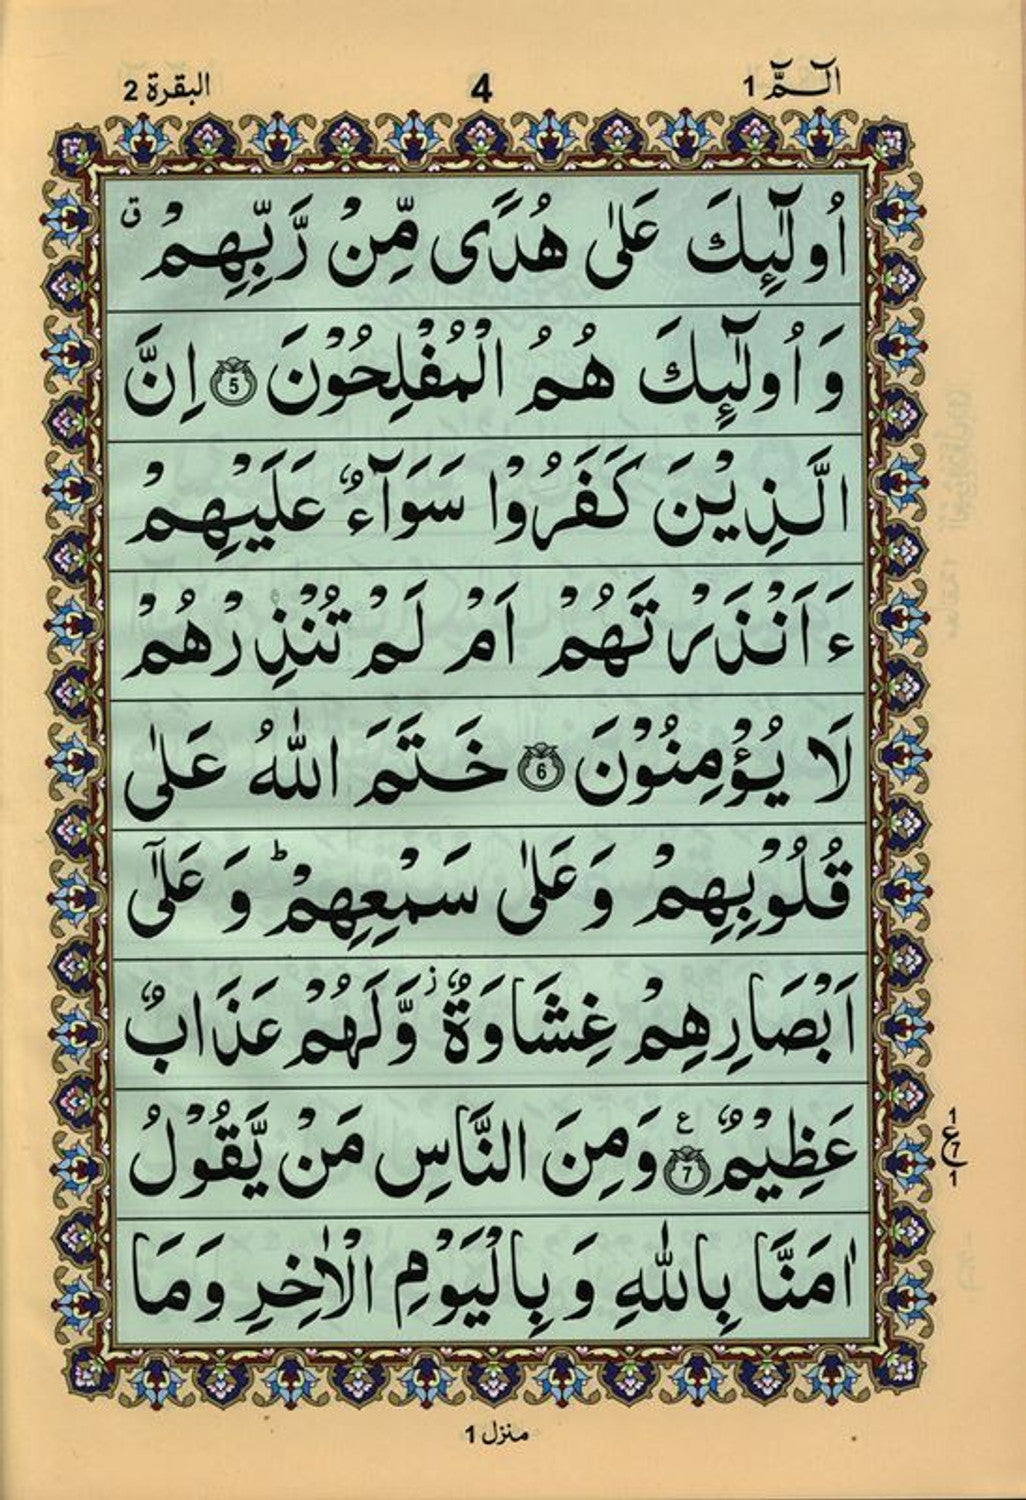 الٓـمّٓ 1 4 البقرة 2
اُولٰٓئِكَ عَلٰى هُدًى مِّنْ رَّبِّهِمْ ۗق
وَاُولٰٓئِكَ هُمُ الْمُفْلِحُوْنَ 5 اِنَّ
الَّذِيْنَ كَفَرُوْا سَوَآءٌ عَلَيْهِمْ
ءَاَنْذَرْتَهُمْ اَمْ لَمْ تُنْذِرْهُمْ
لَا يُؤْمِنُوْنَ 6 خَتَمَ اللّٰهُ عَلٰى
قُلُوْبِهِمْ وَعَلٰى سَمْعِهِمْ ؕ وَعَلٰٓى
اَبْصَارِهِمْ غِشَاوَةٌ ز وَّلَهُمْ عَذَابٌ
عَظِيْمٌ 7 ع وَمِنَ النَّاسِ مَنْ يَّقُوْلُ
اٰمَنَّا بِاللّٰهِ وَبِالْيَوْمِ الْاٰخِرِ وَمَا
1
ع 7
1
منزل 1